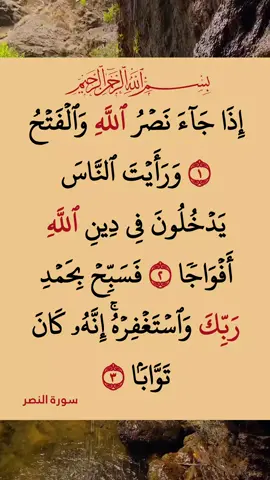 بِسْمِ اللَّهِ الرَّحْمَٰنِ الرَّحِيمِ
إِذَا جَآءَ نَصْرُ ٱللَّهِ وَٱلْفَتْحُ
١ وَرَأَيْتَ ٱلنَّاسَ
يَدْخُلُونَ فِى دِينِ ٱللَّهِ
أَفْوَاجًا ٢ فَسَبِّحْ بِحَمْدِ
رَبِّكَ وَٱسْتَغْفِرْهُ ۚ إِنَّهُۥ كَانَ
تَوَّابًۢا ٣
سورة النصر